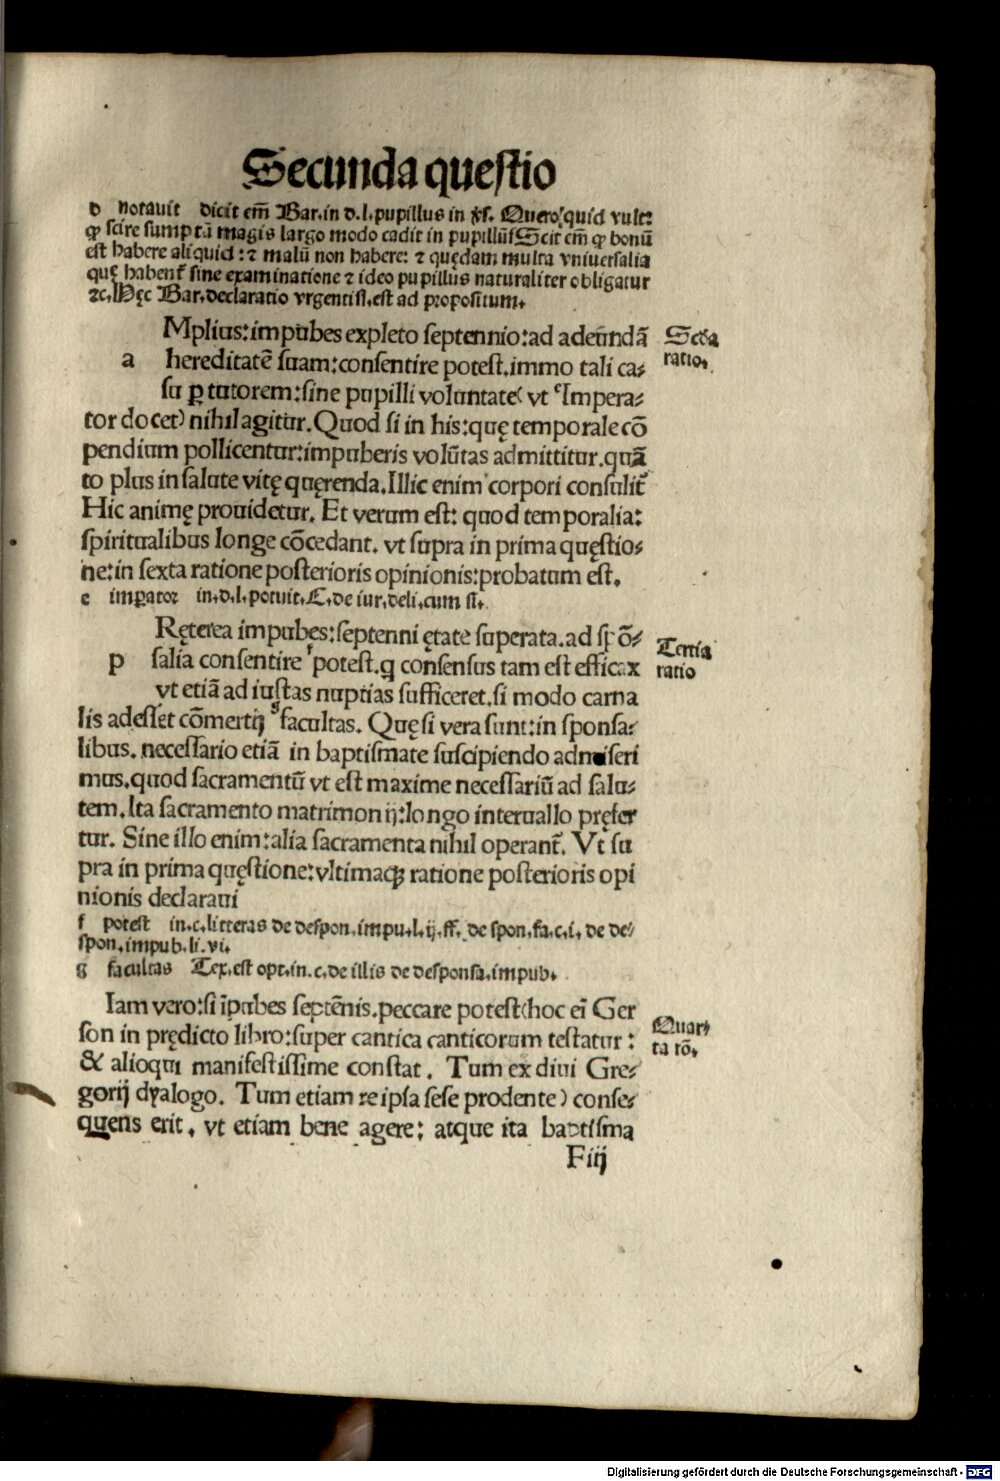 Secunda questio
d notauit dicit em̄ Bar.in d.l.pupillus in fs. Quero/quid vult:
ꝙ scire sumptū magis largo modo cadit in pupillū/Scit em̄ ꝙ bonū
est habere aliquid:⁊ malū non habere: ⁊ quędam multa vniuersalia
quę habent̄ sine examinatione ⁊ ideo pupillus naturaliter obligatur
⁊c.Hęc Bar.declaratio vrgentiss.est ad propositum.
Mplius:impubes expleto septennio:ad adeūndā
Scd̄a
a hereditatē suam:consentire potest.immo tali ca-
ratio.
su ꝑ tutorem:sine pupilli voluntate( vt ᵉImpera-
tor docet) nihil agitur.Quod si in his:quę temporale cō
pendium pollicentur:impuberis volūtas admittitur.quā
to plus in salute vitę quęrenda.Illic enim corpori consulit̄
Hic animę prouidetur. Et verum est: quod temporalia:
spiritualibus longe cōcedant. vt supra in prima quęstio-
ne:in sexta ratione posterioris opinionis:probatum est.
e imꝑator in.d.l.potuit.C.de iur.deli.cum si.
Ręterea impubes:septenni ętate superata.ad spō-
Tertia
p salia consentire ᶠpotest.qꝫ consensus tam est efficax
ratio
vt etiā ad iustas nuptias sufficeret.si modo carna
lis adesset cōmertij ᵍfacultas. Quę si vera sunt:in sponsa-
libus. necessario etiā in baptismate suscipiendo admiseri
mus.quod sacramentū vt est maxime necessariū ad salu-
tem.Ita sacramento matrimonij:longo interuallo pręfer
tur. Sine illo enim:alia sacramenta nihil operant̄. Vt su
pra in prima quęstione:vltimaqꝫ ratione posterioris opi
nionis declaraui
f potest in.c.litteras de despon.impu.l.ij.ff. de spon.fa.c.i. de de/
spon.impub.li.vi.
g facultas Tex.est opt.in.c.de illis de desponsa.impub.
Iam vero:si īpubes septēnis.peccare potest(hoc eī Ger
Quar-
son in prędicto libro:super cantica canticorum testatur:
ta rō.
& alioqui manifestissime constat. Tum ex diui Gre-
gorij dyalogo. Tum etiam re ipsa sese prodente) conse-
quens erit, vt etiam bene agere: atque ita baptisma
Fiij
Digitalisierung gefördert durch die Deutsche Forschungsgemeinschaft - DFG